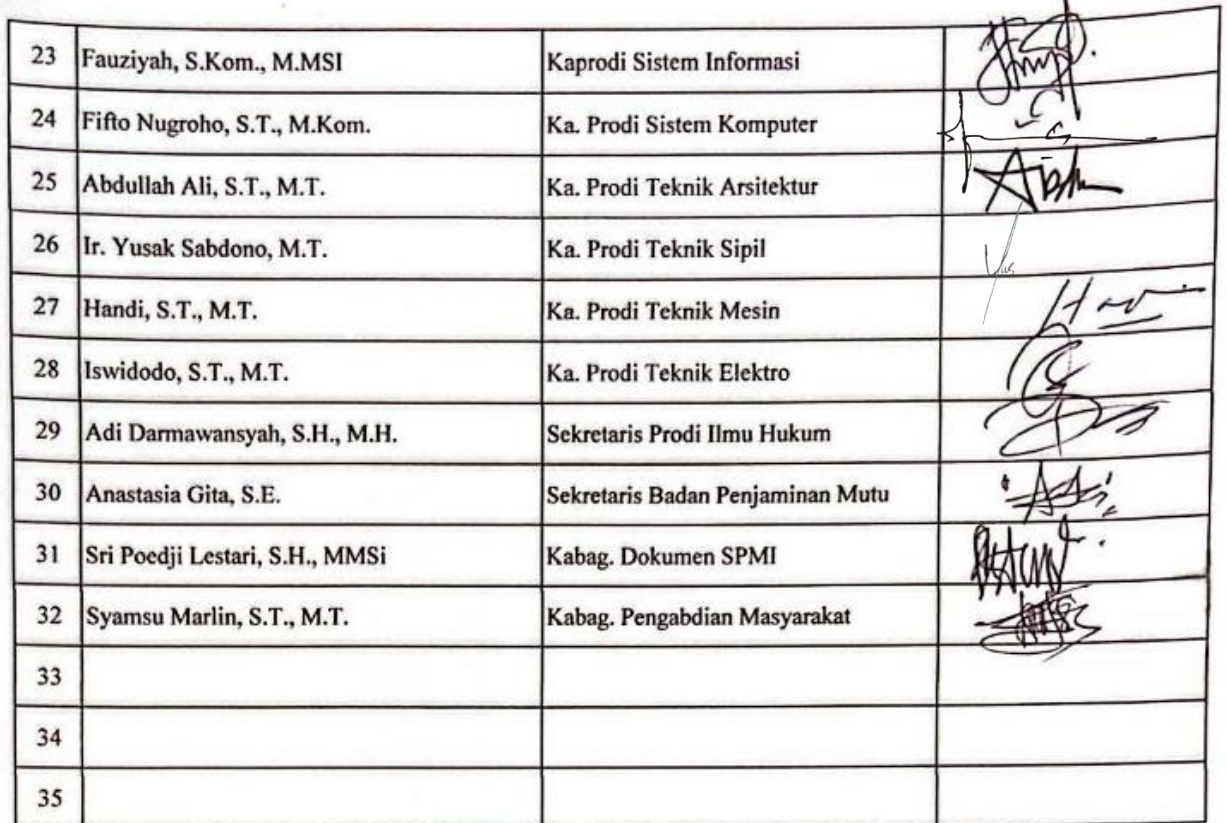 23 Fauziyah, S.Kom., M.MSI Kaprodi Sistem Informasi
24 Fifto Nugroho, S.T., M.Kom. Ka. Prodi Sistem Komputer
25 Abdullah Ali, S.T., M.T. Ka. Prodi Teknik Arsitektur
26 Ir. Yusak Sabdono, M.T. Ka. Prodi Teknik Sipil
27 Handi, S.T., M.T. Ka. Prodi Teknik Mesin
28 Iswidodo, S.T., M.T. Ka. Prodi Teknik Elektro
29 Adi Darmawansyah, S.H., M.H. Sekretaris Prodi Ilmu Hukum
30 Anastasia Gita, S.E. Sekretaris Badan Penjaminan Mutu
31 Sri Poedji Lestari, S.H., MMSi Kabag. Dokumen SPMI
32 Syamsu Marlin, S.T., M.T. Kabag. Pengabdian Masyarakat
33
34
35